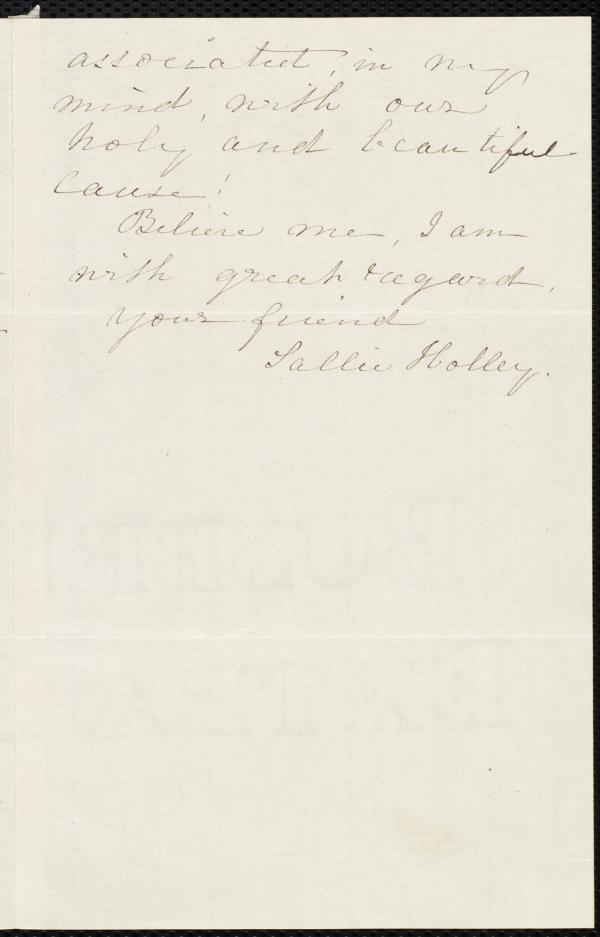 associated, in my
mind, with our
holy and beautiful
cause!
Believe me, I am
with great regard,
your friend
Sallie Holley.